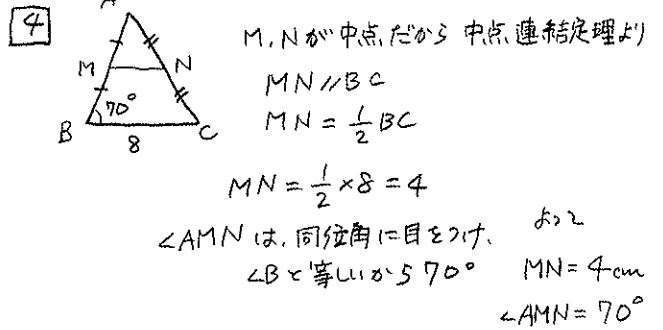 4
A
M
N
70°
B
C
8
M, Nが中点だから 中点連結定理より
MN // BC
MN = 1/2 BC
MN = 1/2 × 8 = 4
∠AMN は、同位角に目をつけ、
∠Bと等しいから 70°
よって
MN = 4cm
∠AMN = 70°